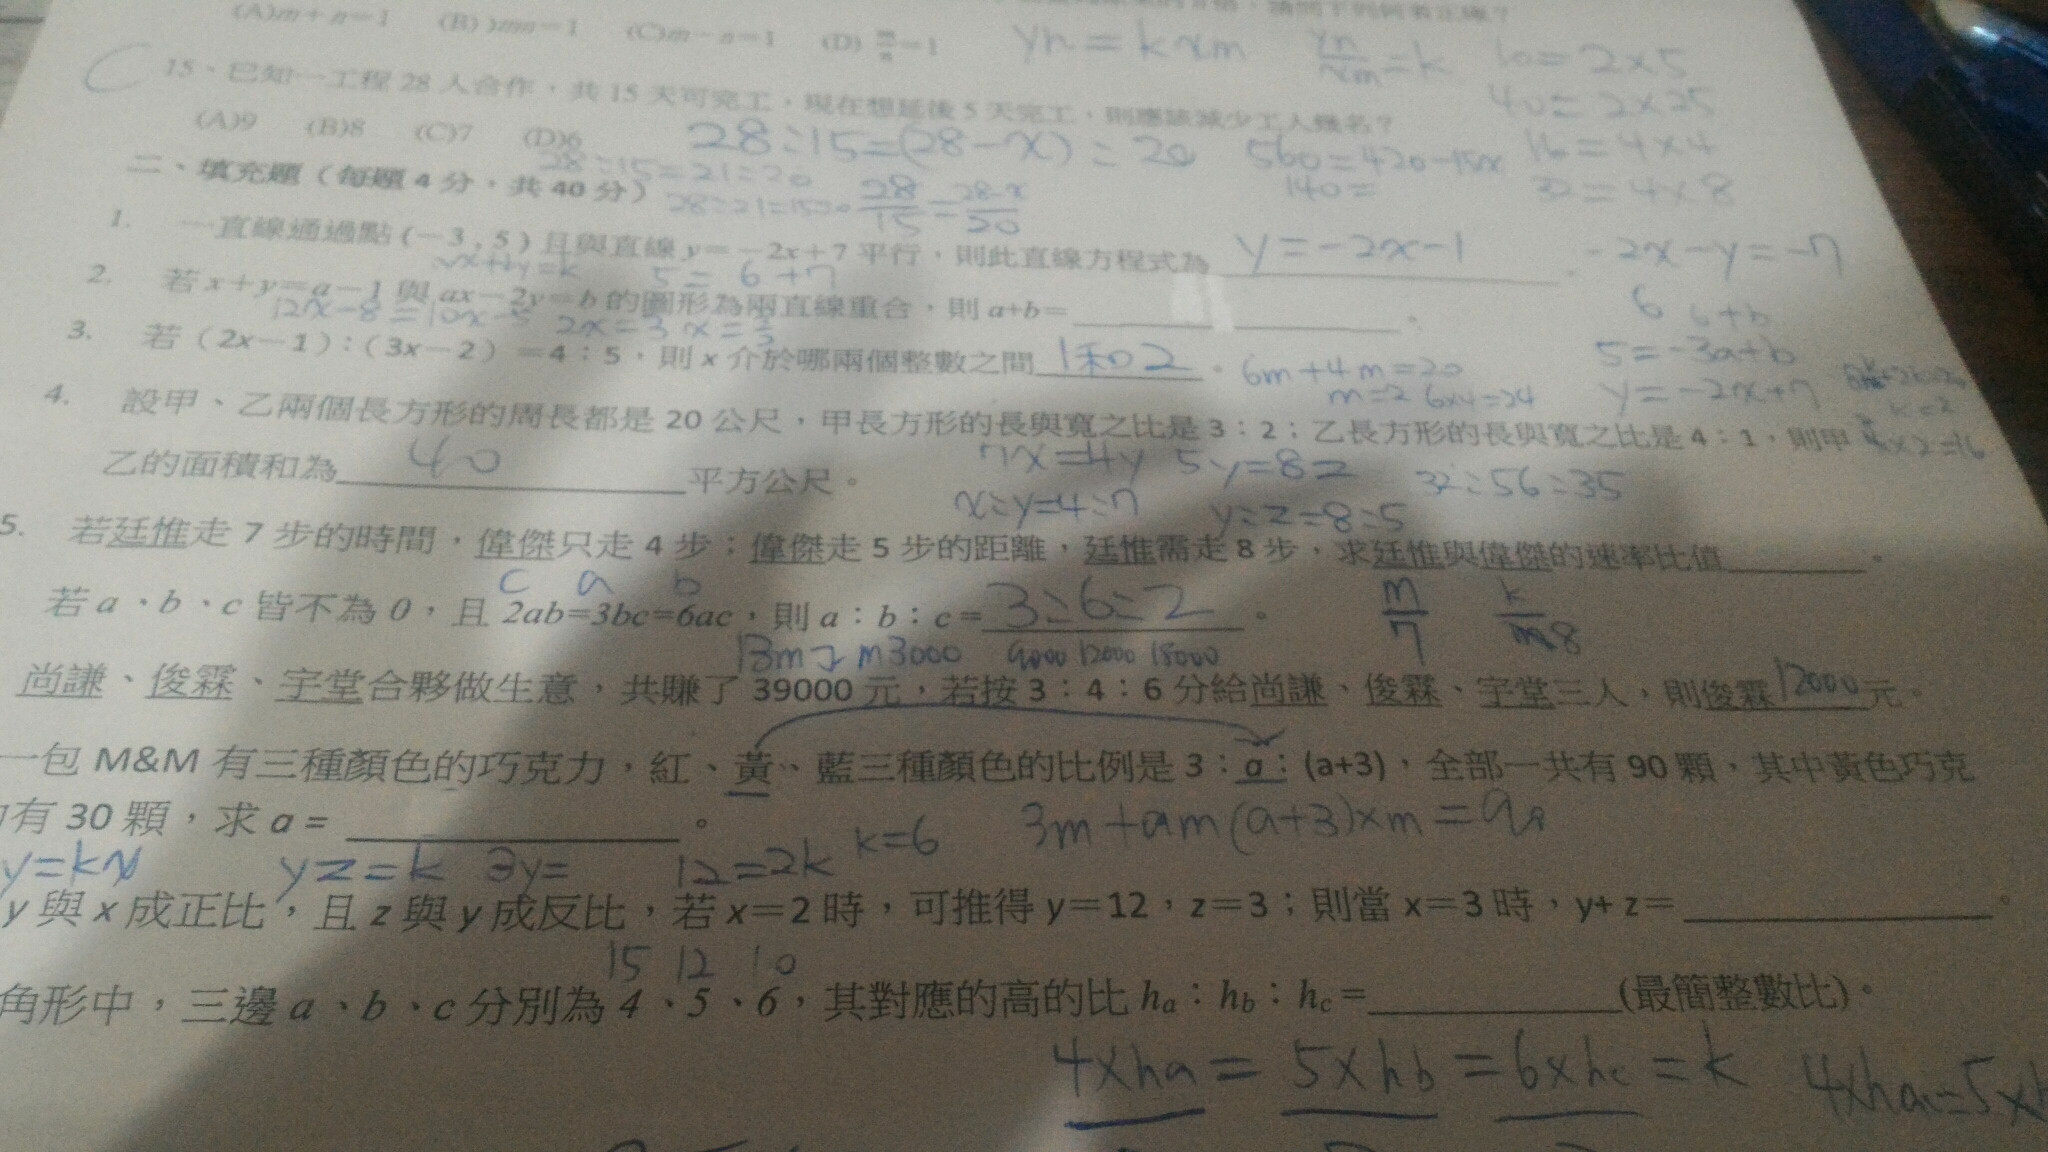 (A)m+n=1 (B)mn=1 (C)m-n=1 (D) m/n=1
yn = kxm yn/xm=k 10=2×5
40=2×25
C 15、已知一工程28人合作，共15天可完工，現在想延後5天完工，則應該減少工人幾名？
(A)9 (B)8 (C)7 (D)6
28:15=(28-x):20 560=420-15x 16=4×4
28:15=21:20 140= 32=4×8
二、填充題（每題4分，共40分）
28:21=15:20 28/15=28-x/20
1. 一直線通過點(－3,5)且與直線y=－2x+7平行，則此直線方程式為 y=-2x-1 。 -2x-y=-7
5=6+7
2. 若x+y=a－1與ax－2y=b的圖形為兩直線重合，則a+b=＿＿＿。
6 6+b
12x-8=10x-5 2x=3 x=3/2
5=-3a+b
3. 若（2x－1）：（3x－2）=4：5，則x介於哪兩個整數之間 1和2 。
6m+4m=20 y=-2x+7
m=2 6×4=24
4. 設甲、乙兩個長方形的周長都是20公尺，甲長方形的長與寬之比是3：2；乙長方形的長與寬之比是4：1，則甲
乙的面積和為 40 平方公尺。
×2=16
7x=4y 5y=8z 32:56:35
x:y=4:7 y:z=8:5
5. 若廷惟走7步的時間，偉傑只走4步；偉傑走5步的距離，廷惟需走8步，求廷惟與偉傑的速率比值＿＿＿。
c a b
若a、b、c皆不為0，且2ab=3bc=6ac，則a：b：c= 3:6:2 。
m/7 k/8
13m m3000 9000 12000 18000
尚謙、俊霖、宇堂合夥做生意，共賺了39000元，若按3：4：6分給尚謙、俊霖、宇堂三人，則俊霖12000元。
一包M&M有三種顏色的巧克力，紅、黃、藍三種顏色的比例是3：a：(a+3)，全部一共有90顆，其中黃色巧克
有30顆，求a=＿＿＿。
3m+am(a+3)×m=90
y=kx yz=k 12=2k k=6
y與x成正比，且z與y成反比，若x=2時，可推得y=12，z=3；則當x=3時，y+z=＿＿＿。
15 12 10
角形中，三邊a、b、c分別為4、5、6，其對應的高的比ha：hb：hc=＿＿＿(最簡整數比)。
4×ha=5×hb=6×hc=k 4×ha=5×